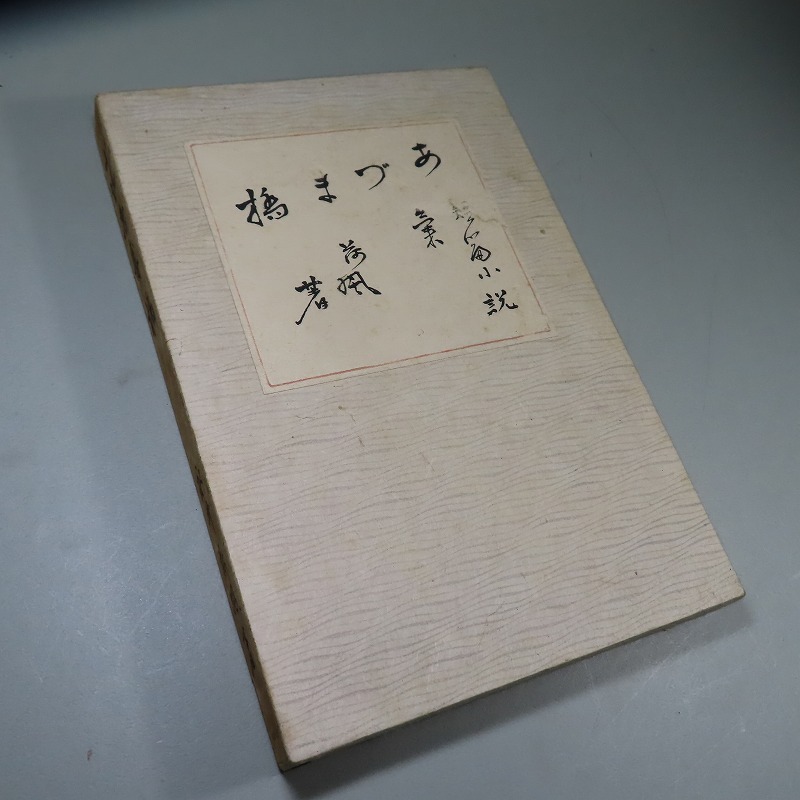 あづま橋
短篇小説
集
荷風
著